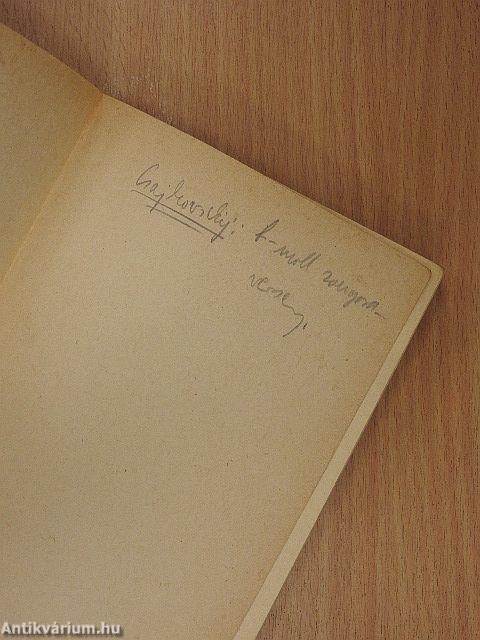 Csajkovszkij: b-moll zongora-
verseny.
Antikvárium.hu